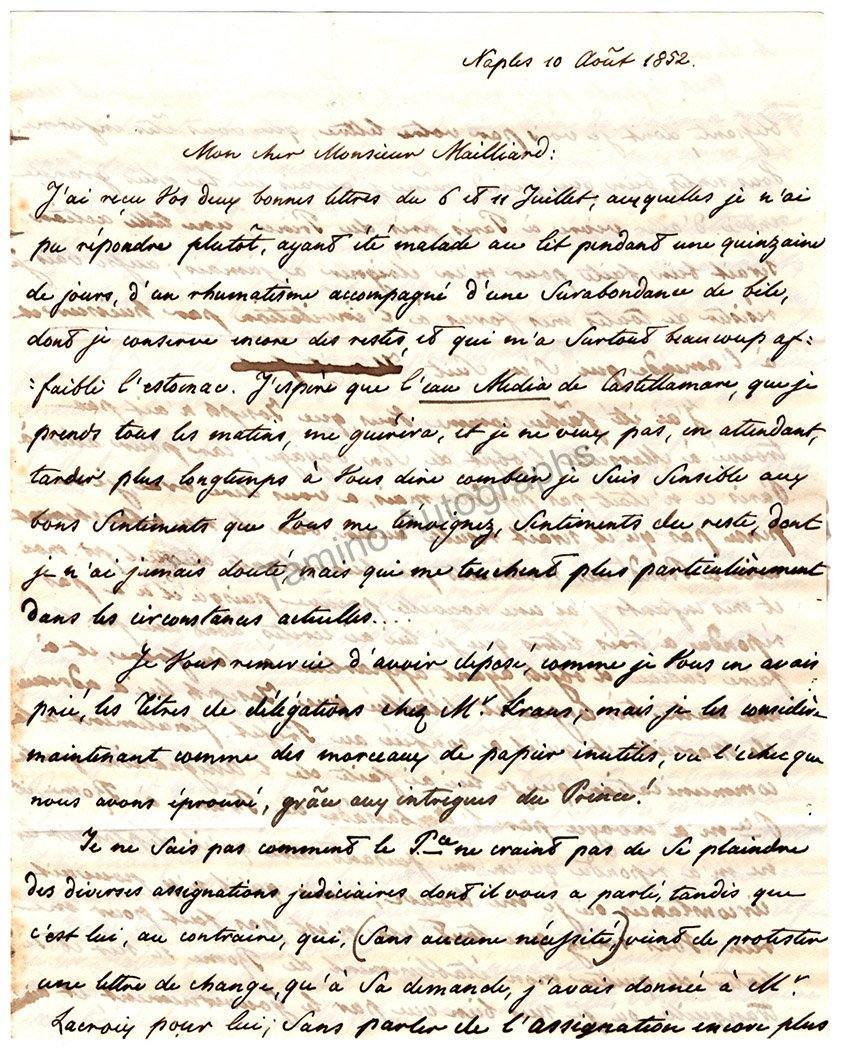 Naples 10 Août 1852.
Mon cher Monsieur Mailliard:
J'ai reçu Vos deux bonnes lettres du 6 et 11 Juillet, auxquelles je n'ai
pu répondre plutôt, ayant été malade au lit pendant une quinzaine
de jours, d'un rhumatisme accompagné d'une Surabondance de bile,
dont je conserve encore des restes, et qui m'a Surtout beaucoup af=
=faibli l'estomac. J'espère que l'eau Media de Castellamare, que je
prends tous les matins, me guérira, et je ne veux pas, en attendant,
tarder plus longtemps à Vous dire combien je Suis Sensible aux
bons Sentiments que Vous me témoignez, Sentiments du reste, dont
je n'ai jamais douté, mais qui me touchent plus particulièrement
dans les circonstances actuelles....
Je Vous remercie d'avoir déposé, comme je Vous en avais
prié, les titres de délégations chez Mr. Kraus; mais je les considère
maintenant comme des morceaux de papier inutiles, vu l'échec que
nous avons éprouvé, grâce aux intrigues du Prince!
Je ne Sais pas comment le Pce ne craint pas de Se plaindre
des diverses assignations judiciaires dont il vous a parlé, tandis que
c'est lui, au contraire, qui, (Sans aucune nécessité) vient de protester
une lettre de change, qu'à Sa demande, j'avais donnée à Mr.
Lacroix pour lui; Sans parler de l'assignation encore plus
Tamino Autographs